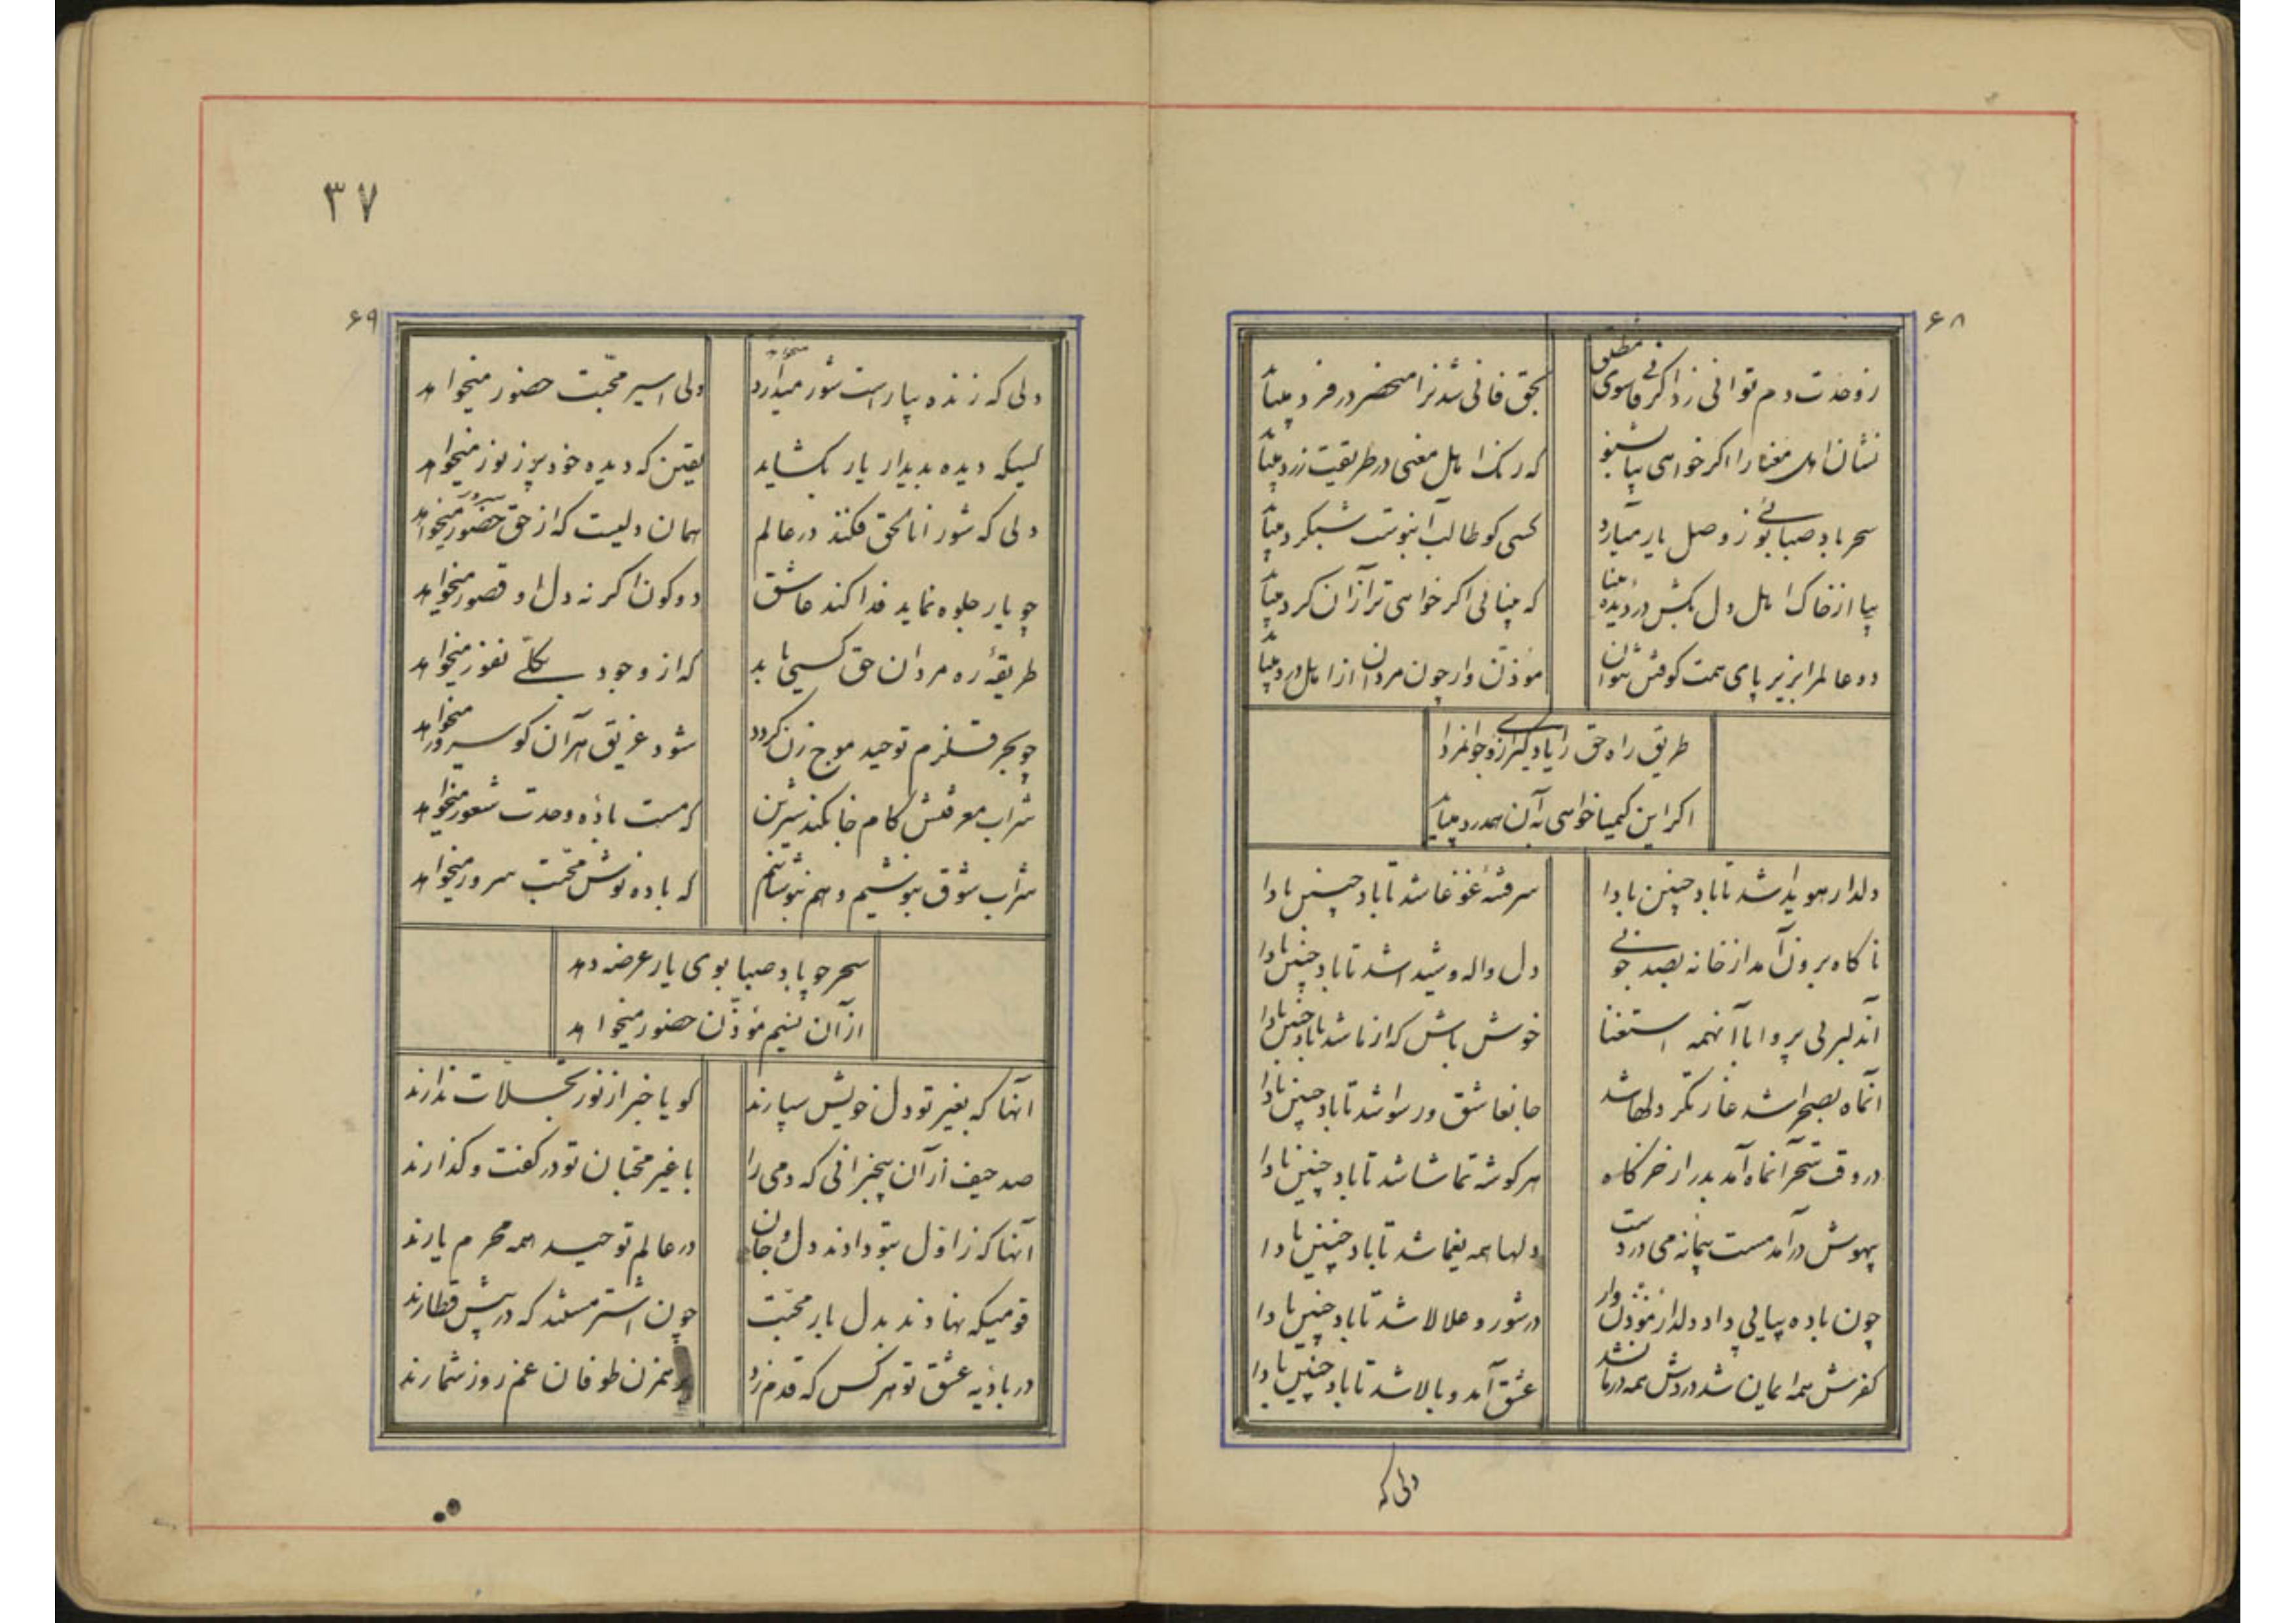 ۶۸
ز وحدت دم توانی زد اگر فانی مطلق سوی
بحق فانی شد نرا منحصر در فرد میباید
نشان اهل معنا را اگر خواهی بیا بشنو
که رنک اهل معنی در طریقت زرد میباید
سحر باد صبا بوئی ز وصل یار میآرد
کسی کو طالب آنبوست شبکرد میباید
بیا از خاک اهل دل بکش در دیده بینا
که بینائی اگر خواهی ترا زان کرد میباید
دو عالم را بزیر پای همت کوفتن نتوان
مؤذن وار چون مردان از اهل درد میباید
طریق راه حق را یاد گیر از وی جوانمردا
اکر این کیمیا خواهی بآن همدرد میباید
دلدار هویدا شد تا باد چنین بادا
سرفتنه غوغا شد تا باد چنین بادا
ناکاه برون آمد از خانه بصد خوبی
دل واله و شیدا شد تا باد چنین بادا
آندلبر بی پروا با آنهمه استغنا
خوش باش که از ما شد تا باد چنین بادا
آنماه بصحرا شد غارتگر دلها شد
جانعاشق و رسوا شد تا باد چنین بادا
در وقت سحر آنماه آمد بدر از خرکاه
هر کوشه تماشا شد تا باد چنین بادا
بیهوش درآمد مست پیمانه می در دست
دلها همه یغما شد تا باد چنین بادا
چون باده پیاپی داد دلدار مؤذن وار
در شور و علالا شد تا باد چنین بادا
کفرش همه ایمان شد دردش همه درمان شد
عشق آمد و بالا شد تا باد چنین بادا
دلی که
۳۷
۶۹
دلی که زنده بیار است شور میدارد
دلی اسیر محبت حضور میخواهد
کسیکه دیده بدیدار یار بکشاید
یقین که دیده خود پر ز نور میخواهد
دلی که شور اناالحق فکند در عالم
همان دلیست که از حق حضور میخواهد
چو یار جلوه نماید فدا کند عاشق
دو کون اکر نه دل او قصور میخواهد
طریقه ره مردان حق کسی یابد
که از وجود بکلی نفور میخواهد
چو بحر قلزم توحید موج زن کردد
شود غریق هر آن کو سرور میخواهد
شراب معرفتش کام جان کند شیرین
که مست باده وحدت شعور میخواهد
شراب شوق بنوشیم و هم بنوشانیم
که باده نوش محبت سرور میخواهد
سحر چو باد صبا بوی یار عرضه دهد
از آن نسیم مؤذن حضور میخواهد
آنها که بغیر تو دل خویش سپارند
کویا خبر از نور تجلات ندارند
صد حیف از آن بیخبرانی که دمی را
با غیر محبان تو در کفت و گذارند
آنها که ز اول بتو دادند دل و جان
در عالم توحید همه محرم یارند
قومیکه نهادند بدل بار محبت
چون اشتر مستند که در پیش قطارند
در بادیه عشق تو هر کس که قدم زد
برهمزن طوفان غم روز شمارند